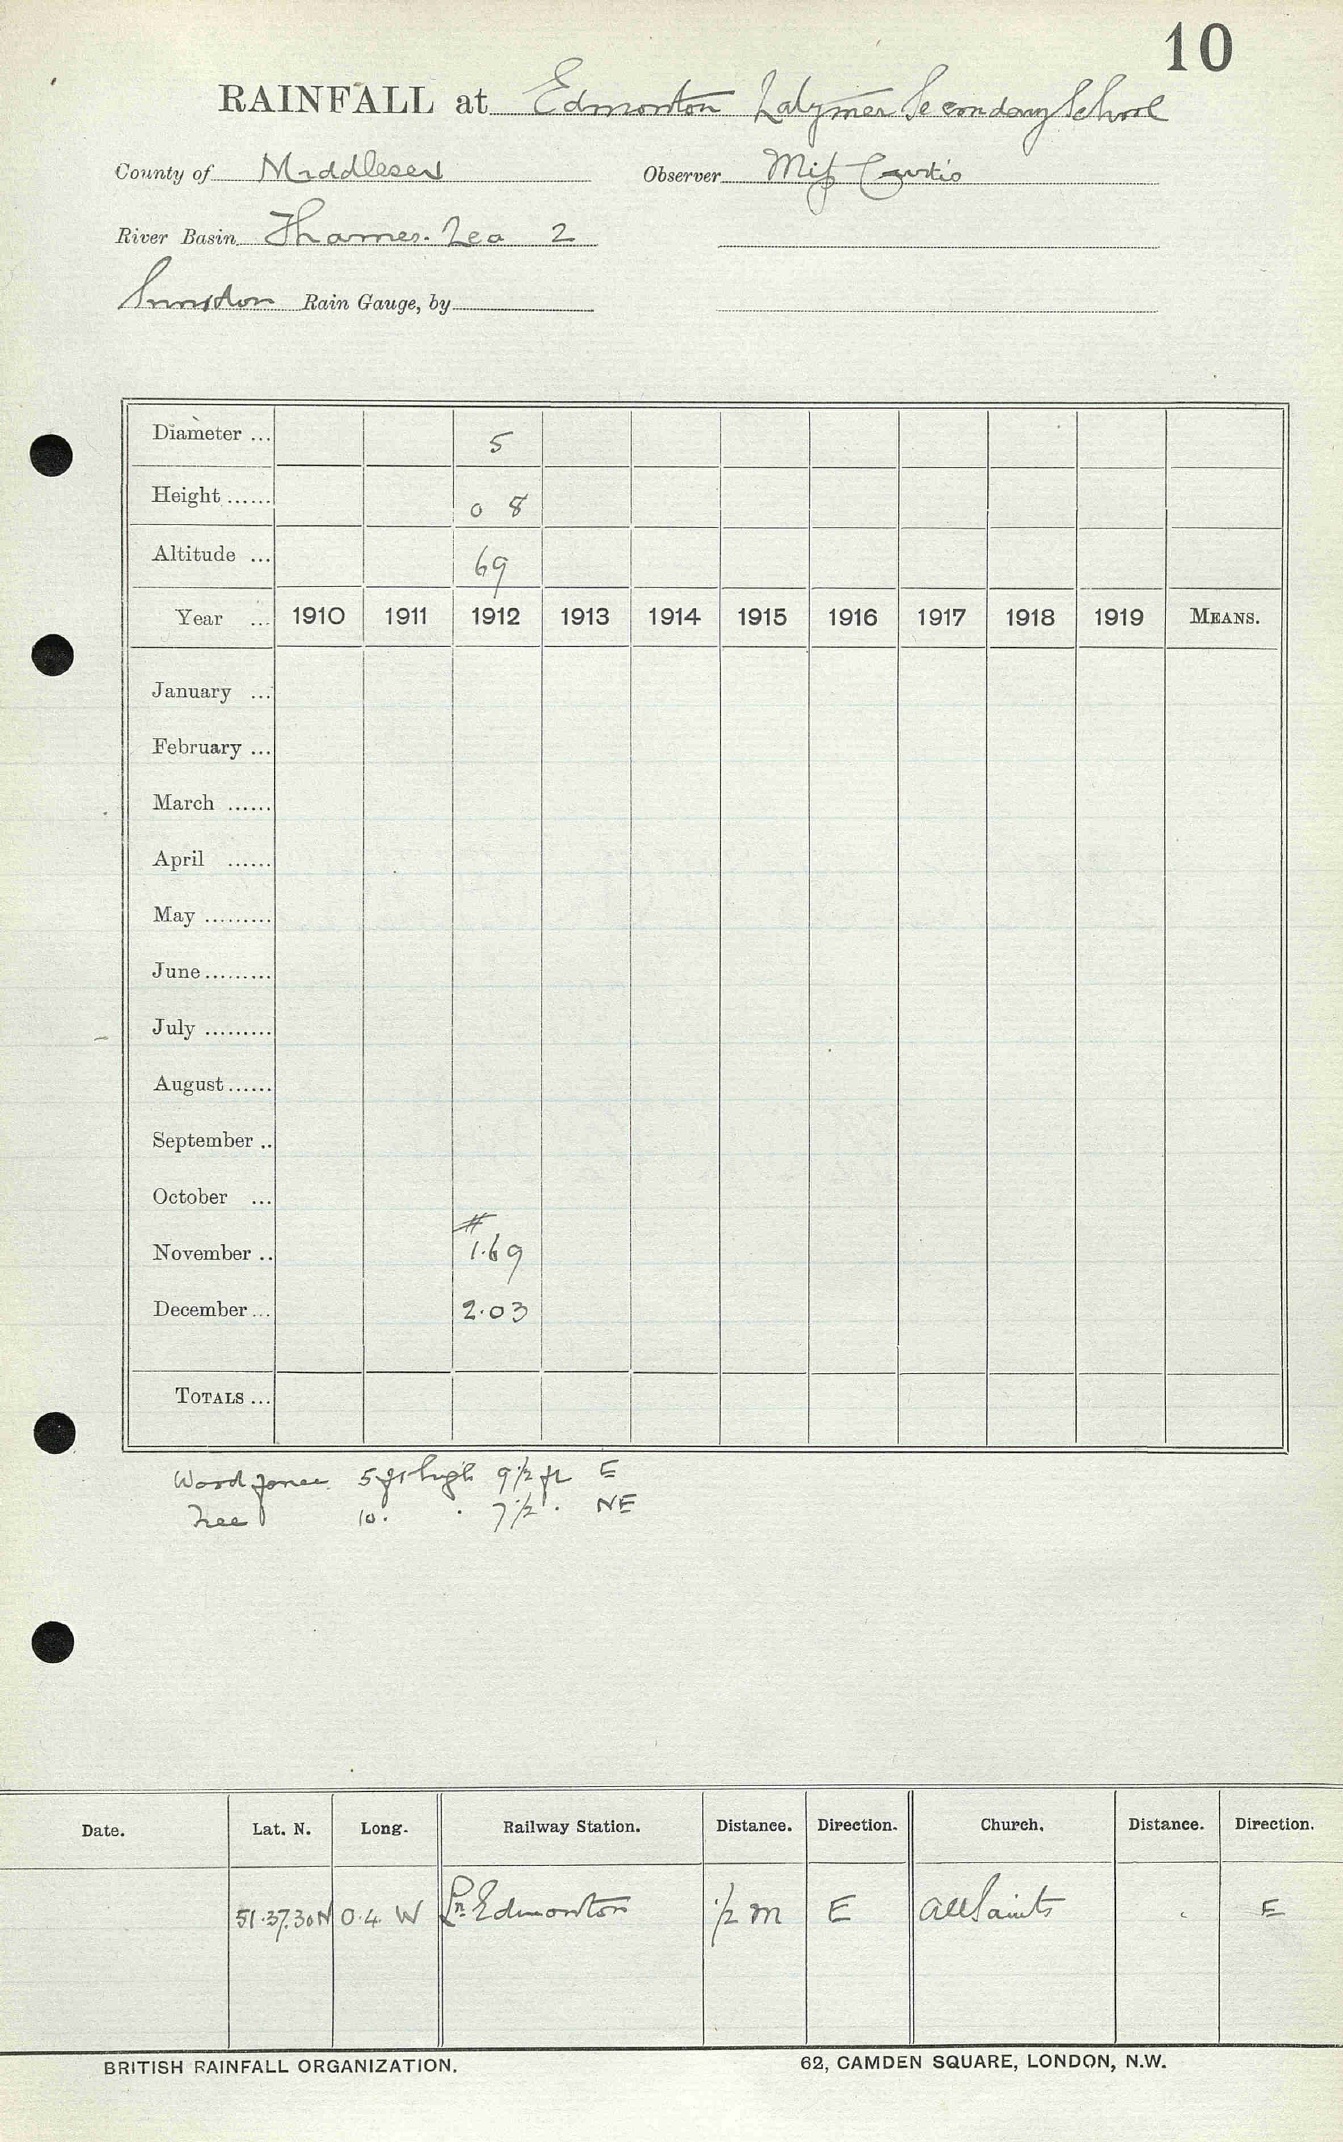 10
RAINFALL at Edmonton Latymer Secondary School
County of Middlesex Observer Miss Curtis
River Basin Thames. Lea 2
Snowdon Rain Gauge, by
Diameter ... 5
Height ...... 0 8
Altitude ... 69
Year ... 1910 1911 1912 1913 1914 1915 1916 1917 1918 1919 MEANS.
January ...
February ...
March ......
April ......
May .........
June .........
July .........
August ......
September ..
October ...
#
November .. 1.69
December ... 2.03
TOTALS ...
Wood fence 5 ft high 9 1/2 ft E
Tree 10 . 7 1/2 . NE
Date. Lat. N. Long. Railway Station. Distance. Direction. Church. Distance. Direction.
51.37.30N 0.4 W Lr Edmonton 1/2 m E All Saints . E
BRITISH RAINFALL ORGANIZATION. 62, CAMDEN SQUARE, LONDON, N.W.